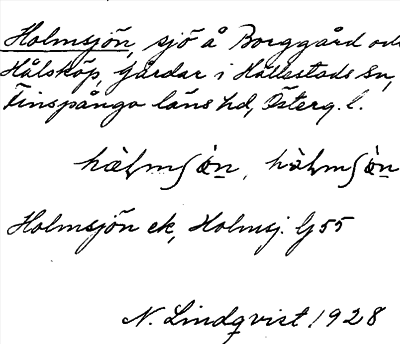 Holmsjön, sjö å Borggård och
Hålsköp, gårdar i Hällestads sn,
Finspånga läns hd, Österg. l.
Holmsjön ek, Holmsj. Gs 55
N. Lindqvist 1928